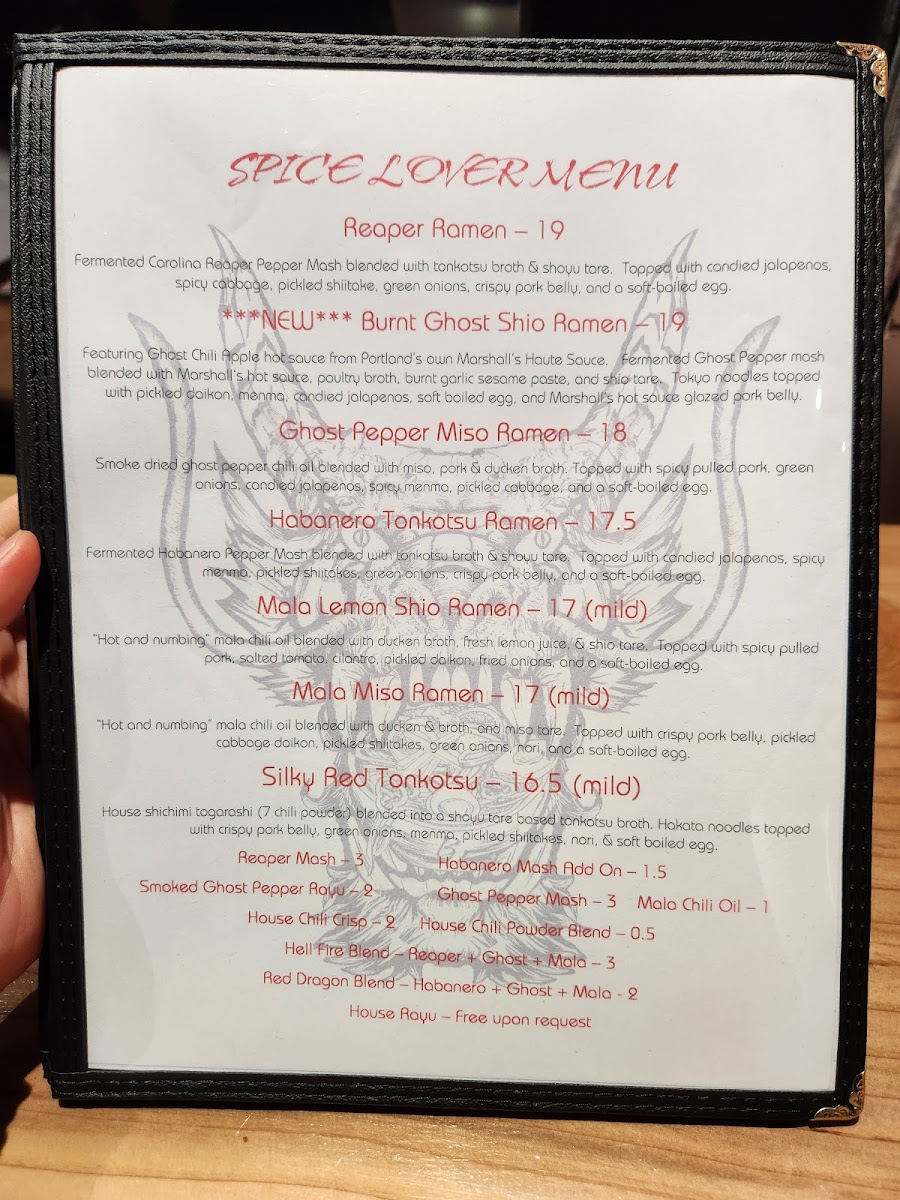 SPICE LOVER MENU
Reaper Ramen – 19
Fermented Carolina Reaper Pepper Mash blended with tonkotsu broth & shoyu tare. Topped with candied jalapenos,
spicy cabbage, pickled shiitake, green onions, crispy pork belly, and a soft-boiled egg.
***NEW*** Burnt Ghost Shio Ramen – 19
Featuring Ghost Chili Apple hot sauce from Portland's own Marshall's Haute Sauce. Fermented Ghost Pepper mash
blended with Marshall's hot sauce, poultry broth, burnt garlic sesame paste, and shio tare. Tokyo noodles topped
with pickled daikon, menma, candied jalapenos, soft boiled egg, and Marshall's hot sauce glazed pork belly.
Ghost Pepper Miso Ramen – 18
Smoke dried ghost pepper chili oil blended with miso, pork & ducken broth. Topped with spicy pulled pork, green
onions, candied jalapenos, spicy menma, pickled cabbage, and a soft-boiled egg.
Habanero Tonkotsu Ramen – 17.5
Fermented Habanero Pepper Mash blended with tonkotsu broth & shoyu tare. Topped with candied jalapenos, spicy
menma, pickled shiitakes, green onions, crispy pork belly, and a soft-boiled egg.
Mala Lemon Shio Ramen – 17 (mild)
"Hot and numbing" mala chili oil blended with ducken broth, fresh lemon juice, & shio tare. Topped with spicy pulled
pork, salted tomato, cilantro, pickled daikon, fried onions, and a soft-boiled egg.
Mala Miso Ramen – 17 (mild)
"Hot and numbing" mala chili oil blended with ducken & broth, and miso tare. Topped with crispy pork belly, pickled
cabbage daikon, pickled shiitakes, green onions, nori, and a soft-boiled egg.
Silky Red Tonkotsu – 16.5 (mild)
House shichimi togarashi (7 chili powder) blended into a shoyu tare based tonkotsu broth. Hakata noodles topped
with crispy pork belly, green onions, menma, pickled shiitakes, nori, & soft boiled egg.
Reaper Mash – 3 Habanero Mash Add On – 1.5
Smoked Ghost Pepper Rayu – 2 Ghost Pepper Mash – 3 Mala Chili Oil – 1
House Chili Crisp – 2 House Chili Powder Blend – 0.5
Hell Fire Blend – Reaper + Ghost + Mala – 3
Red Dragon Blend – Habanero + Ghost + Mala - 2
House Rayu – Free upon request